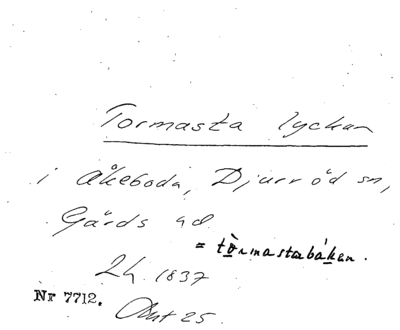 Tormasta lyckan
i Åkeboda, Djurröd sn,
Gärds hd
= tòrmastabákan.
Lh. 1837
Nr 7712. Akt 25.